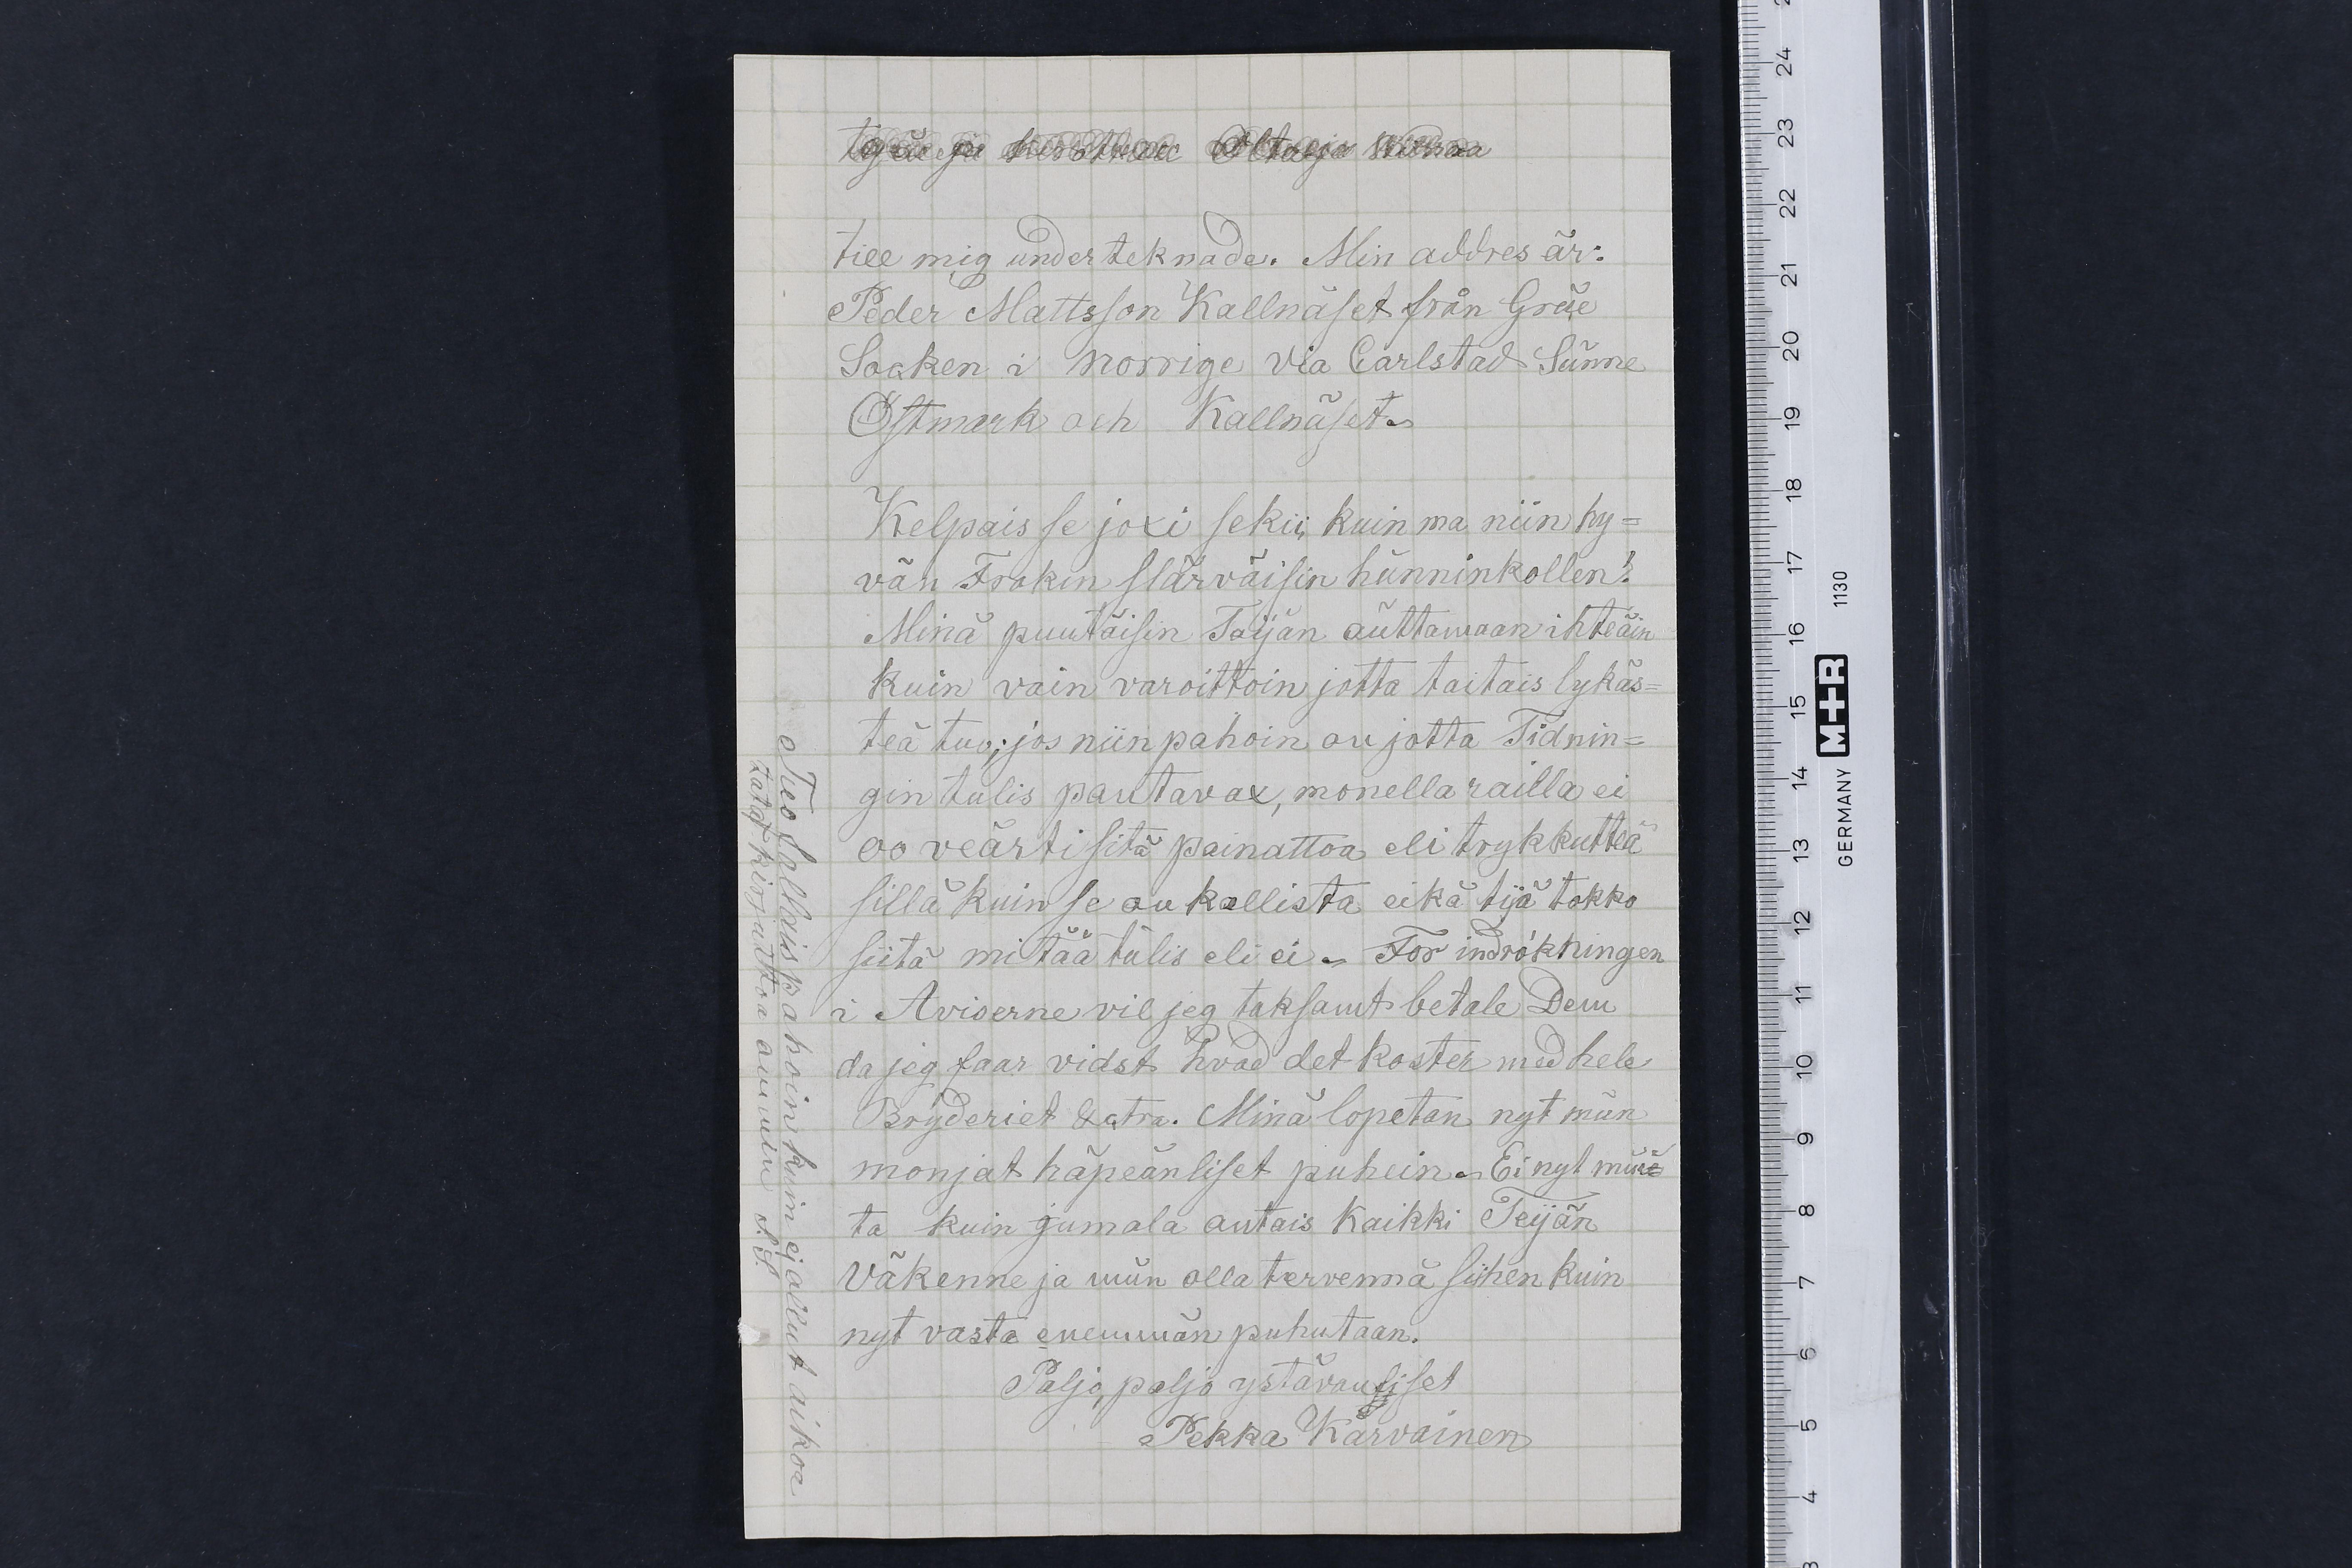 till mig underteknade. Min addres är:
Peder Mattsson Kallnäset från Grüe
Socken i Norrige via Carlstad Sünne
Östmark och Kallnäset.
Kelpais se joxi sekii, kuin ma niin hy=
vän Frøken slärväisin hünninkollen!
Minä puutäisin Taijän aüttamaan ihteäin
kuin vain varoittoin jotta taitais lykäs=
teä tuo; jos niin pahoin ou jotta Tidnin=
gin tulis pantavax, monella railla ei
oo veärti sitä painattoa eli trykkutteä
sillä kuin se ou kallista eikä tijä tokko
siitä mitää tülis eli ei. For indrökningen
i Aviserne vil jeg taksamt betale Dem
da jeg faar vidst hvad det koster med hele
Bryderiet &ctra. Minä lopetan nyt mün
monjat häpeänliset puhein. Ei nyt müü
ta kuin jumala antais kaikki Teijän
väkenne ja mün olla tervennä siihen kuin
nyt vasta enemmän puhutaan.
Paljo, paljo ystävänliset
Pekka Karvainen
Tieo Sallois pahoin kuin ej ollut aikoa
tatat kirjuttoa